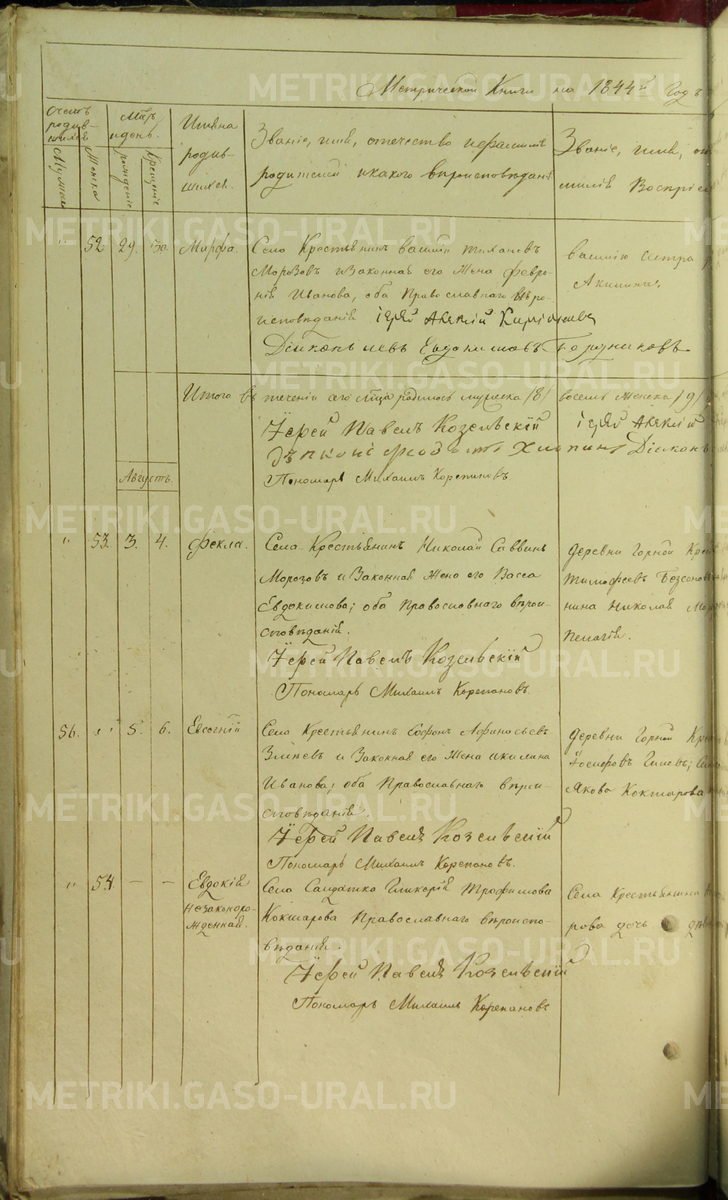 Метрической Книги на 1844й Годъ
Счетъ родив-
шихся
Мужеска
Женска
М-цъ
и день.
рожденіе
крещеніе
Имяна
родив-
шихся.
Званіе, имя, отечество и фамилія
родителей и какого вероисповеданія
Званіе, имя, от
милія Воспріе
" 52. 29. 30. Марфа.
Села Крестьянинъ Василій
Морозовъ и Законная его Жена Февро-
нія Иванова, оба Православнаго Вѣро-
исповѣданія Іерей Алексій
Діаконъ Левъ Евдокимовъ
Василію Петра
Акилина.
Итого въ теченіи сего м-ца родилось мужеска /8/ восемь Женска /9/
Іерей Павелъ Козельскій
Іерей Алексій
Діаконъ
Пономарь Михаилъ Корепановъ
Августъ.
" 53. 3. 4. Фекла.
Села Крестьянинъ Николай Саввинъ
Морозовъ и Законная Жена его Васса
Евдокимова; оба Православного вѣрои-
сповѣданія.
Іерей Павелъ Козельскій
Пономарь Михаилъ Корепановъ.
Деревни Горной Кре
Тимофеевъ
нина Николая Мо
Пелагія.
56. " 5. 6. Евсогній
Села Крестьянинъ Софонъ Афонасьевъ
и Законная его Жена Акилина
Иванова; оба Православнаго вѣрои-
сповѣданія.
Іерей Павелъ Козельскій
Пономарь Михаилъ Корепановъ.
Деревни Горной Кре
Іосифовъ
Якова Кокшарова
" 54 — — Евдокія
Незаконоро-
жденная.
Села Салдатка Гликерія Трофимова
Кокшарова Православнаго вѣроиспо-
вѣданія.
Іерей Павелъ Козельскій
Пономарь Михаилъ Корепановъ
Села Крестьянина
рова дочь
METRIKI.GASO-URAL.RU